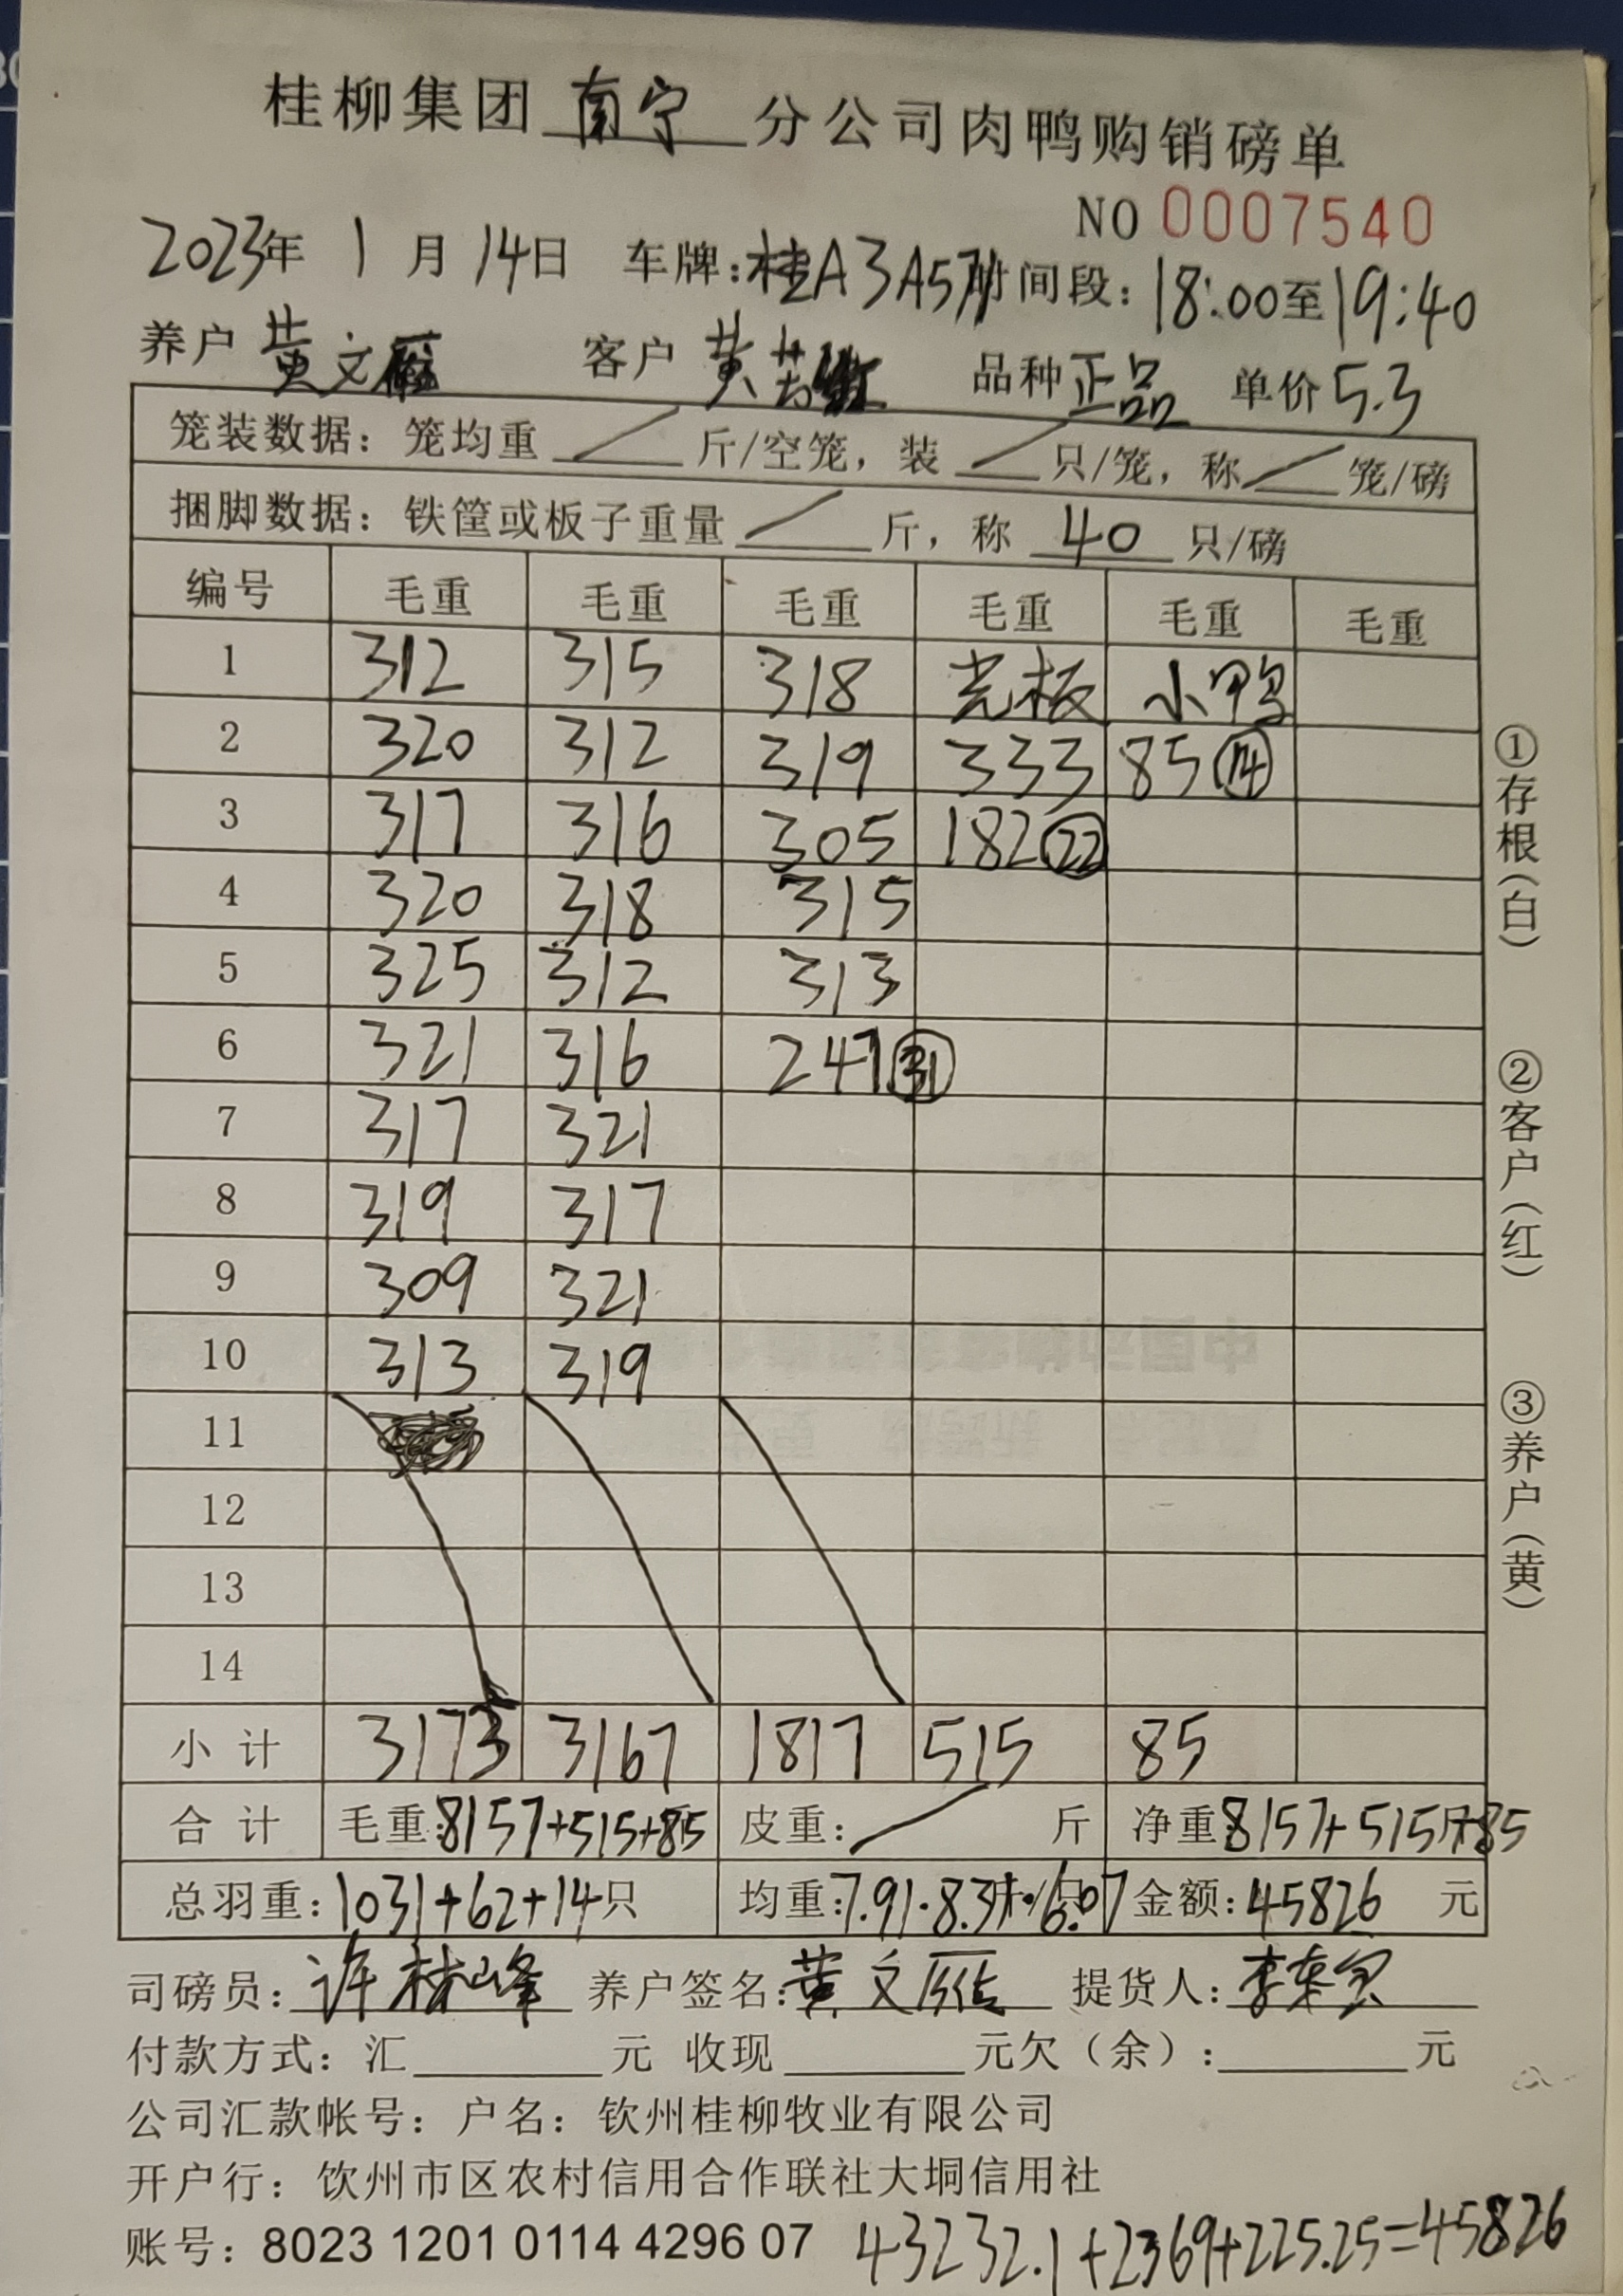 桂柳集团 南宁 分公司肉鸭购销磅单
NO 0007540
2023年 1月 14日 车牌:桂A3A571 时间段:18:00至19:40
养户 黄文雁 客户 黄芸红 品种 正品 单价 5.3
笼装数据:笼均重 / 斤/空笼,装 / 只/笼,称 / 笼/磅
捆脚数据:铁筐或板子重量 / 斤,称 40 只/磅
编号 毛重 毛重 毛重 毛重 毛重 毛重
1 312 315 318 光板 小鸭
2 320 312 319 333 85 ⑭
3 317 316 305 182 ㉒
4 320 318 315
5 325 312 313
6 321 316 247 ㉛
7 317 321
8 319 317
9 309 321
10 313 319
11
12
13
14
小计 3173 3167 1817 515 85
合计 毛重:8157+515+85 皮重: / 斤 净重8157+515+85
总羽重:1031+62+14只 均重:7.91·8.31·6.07 金额:45826 元
司磅员:许林峰 养户签名:黄文雁 提货人:李
付款方式:汇 元 收现 元欠(余): 元
公司汇款帐号:户名:钦州桂柳牧业有限公司
开户行:饮州市区农村信用合作联社大垌信用社
账号:8023 1201 0114 4296 07 43232.1+2369+225.25=45826
①存根(白)
②客户(红)
③养户(黄)